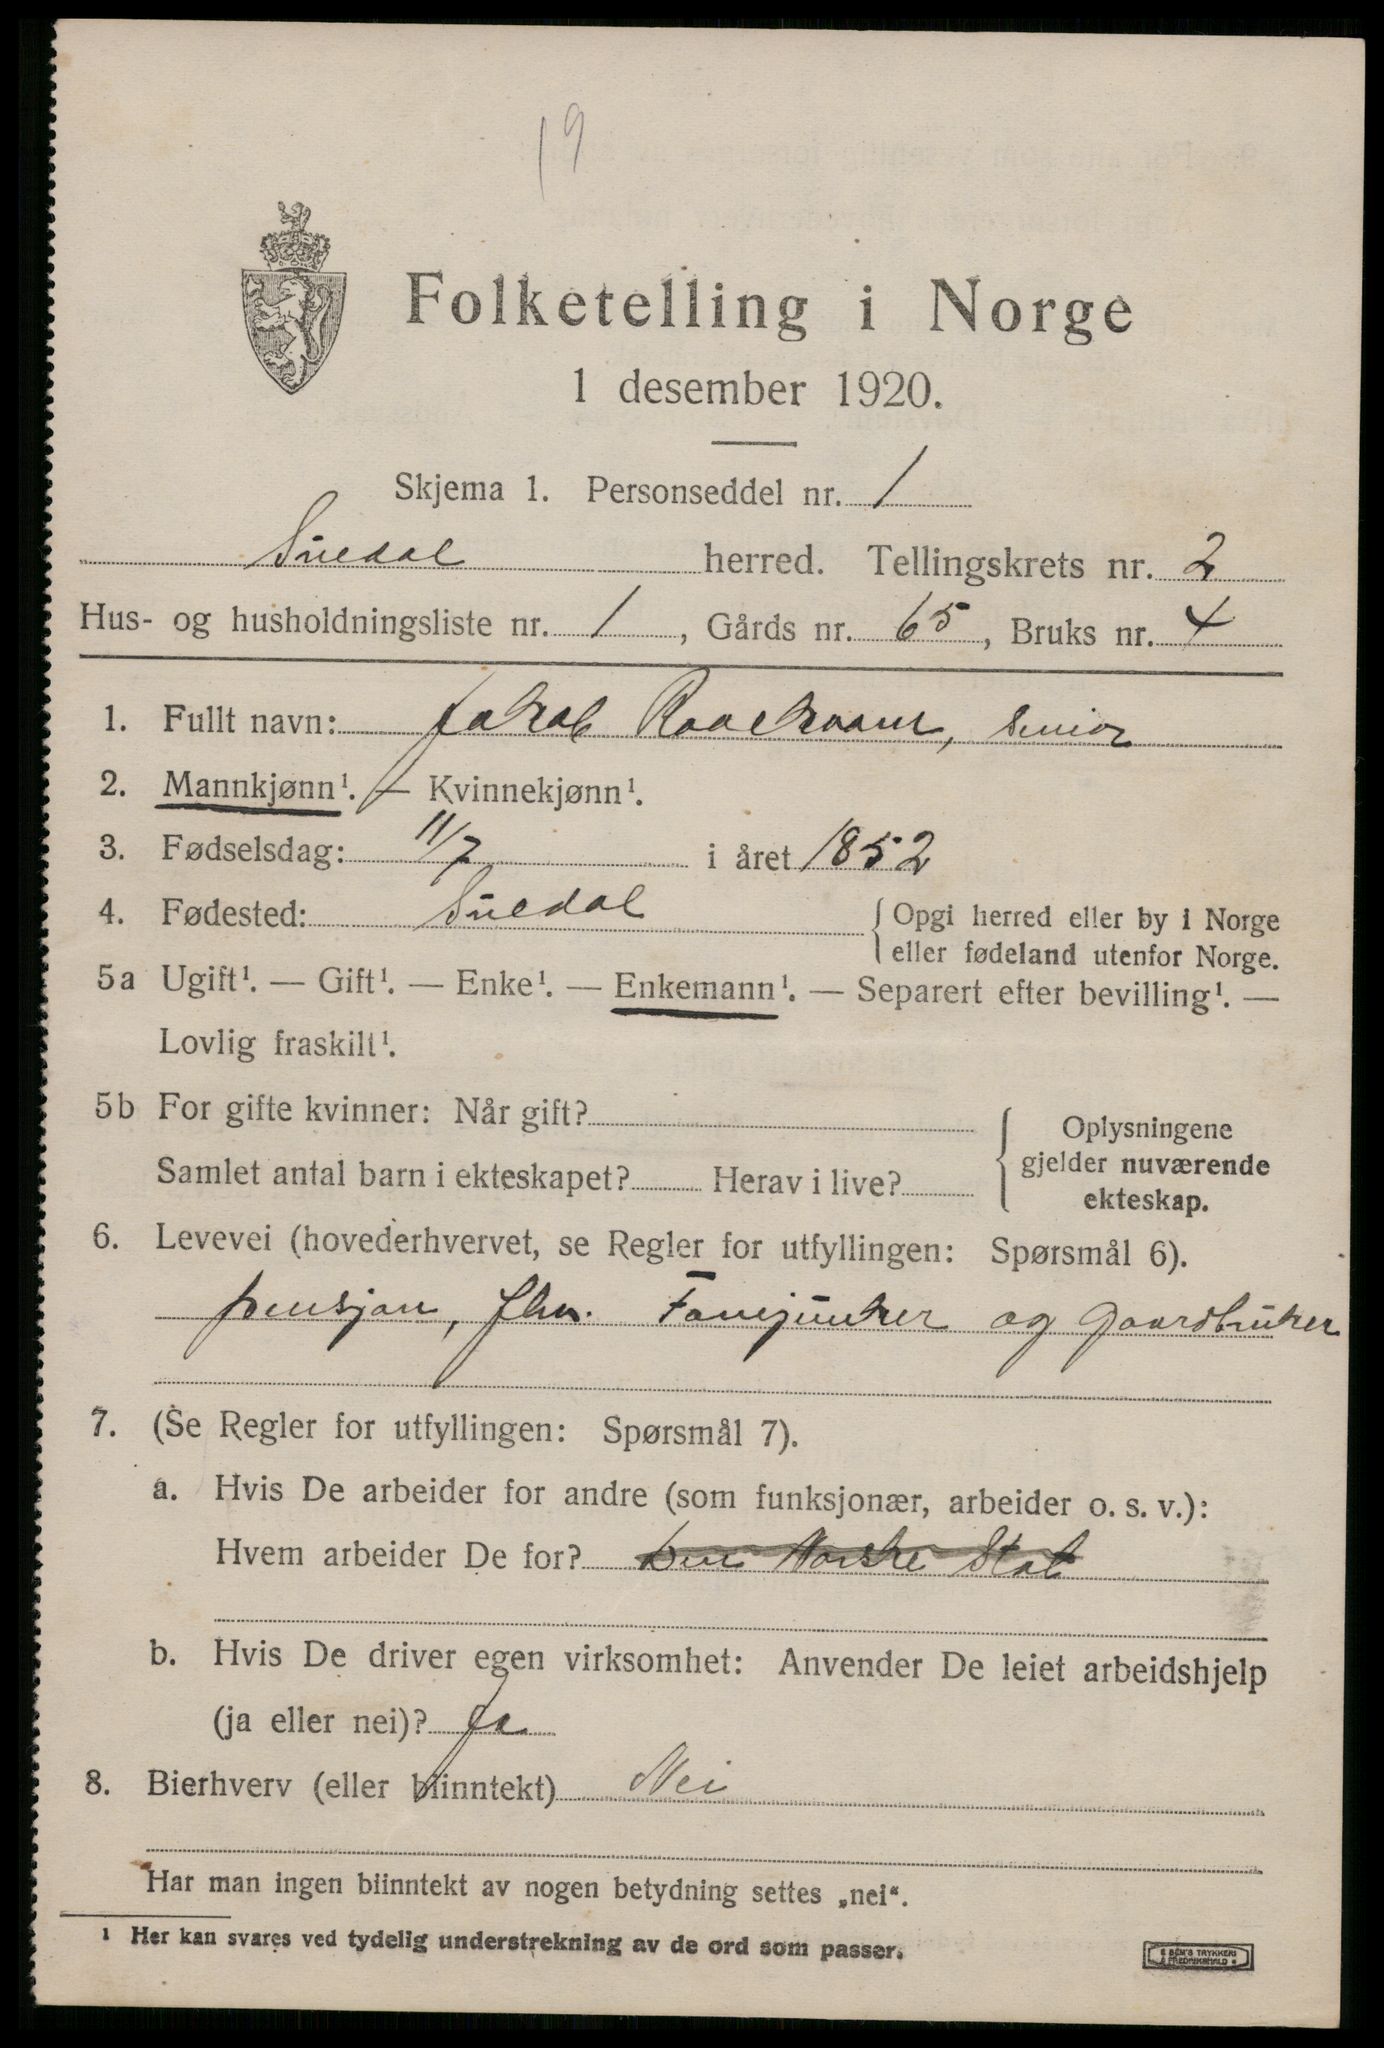 19
Folketelling i Norge
1 desember 1920.
Skjema 1. Personseddel nr. 1
Suldal herred. Tellingskrets nr. 2
Hus- og husholdningsliste nr. 1, Gårds nr. 65, Bruks nr. 4
1. Fullt navn: Jakob Raaekvam, senior
2. Mannkjønn¹. — Kvinnekjønn¹.
3. Fødselsdag: 11/7 i året 1852
4. Fødested: Suldal {Opgi herred eller by i Norge
eller fødeland utenfor Norge.
5a Ugift¹. — Gift¹. — Enke¹. — Enkemann¹. — Separert efter bevilling¹. —
Lovlig fraskilt¹.
5b For gifte kvinner: Når gift?
Samlet antal barn i ekteskapet? Herav i live?
Oplysningene
gjelder nuværende
ekteskap.
6. Levevei (hovederhvervet, se Regler for utfyllingen: Spørsmål 6).
pensjon, fhv. Fanejunker og gaardbruker
7. (Se Regler for utfyllingen: Spørsmål 7).
a. Hvis De arbeider for andre (som funksjonær, arbeider o. s. v.):
Hvem arbeider De for? Den Norske Stat
b. Hvis De driver egen virksomhet: Anvender De leiet arbeidshjelp
(ja eller nei)? Ja
8. Bierhverv (eller biinntekt) Nei
Har man ingen biinntekt av nogen betydning settes „nei“.
¹ Her kan svares ved tydelig understrekning av de ord som passer.
SEM'S TRYKKERI
FREDRIKSHALD